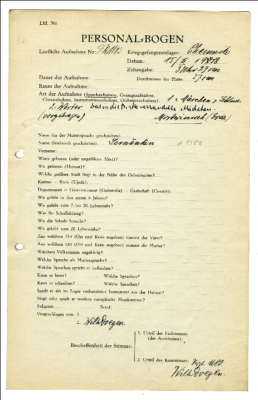 Lfd. Nr.
PERSONAL-BOGEN
Lautliche Aufnahme Nr.: Kriegsgefangenenlager: Chemnitz
Datum: 15/ 1918
Zeitangabe:
Dauer der Aufnahme: Durchmesser der Platte: 27 cm
Raum der Aufnahme:
Art der Aufnahme (Sprechaufnahme, Gesangsaufnahme,
Choraufnahme, Instrumentenaufnahme, Orchesteraufnahme): 1.) Märchen
2. Wörter Mädchen
(vorgetragen)
Name (in der Muttersprache geschrieben):
Name (lateinisch geschrieben):
Vorname:
Wann geboren (oder ungefähres Alter)?
Wo geboren (Heimat)?
Welche größere Stadt liegt in der Nähe des Geburtsortes?
Kanton — Kreis (Ujedz):
Departement — Gouvernement (Gubernija) — Grafschaft (County):
Wo gelebt in den ersten 6 Jahren?
Wo gelebt vom 7. bis 20. Lebensjahr?
Was für Schulbildung?
Wo die Schule besucht?
Wo gelebt vom 20. Lebensjahr?
Aus welchem Ort (Ort und Kreis angeben) stammt der Vater?
Aus welchem Ort (Ort und Kreis angeben) stammt die Mutter?
Welchem Volksstamm angehörig?
Welche Sprache als Muttersprache?
Welche Sprachen spricht er außerdem?
Kann er lesen? Welche Sprachen?
Kann er schreiben? Welche Sprachen?
Spielt er ein im Lager vorhandenes Instrument aus der Heimat?
Singt oder spielt er modern europäische Musikweisen?
Religion: Beruf:
Vorgeschlagen von: 1.
2. Wilh. Doegen.
Beschaffenheit der Stimme:
1. Urteil des Fachmannes
(des Assistenten):
2. Urteil des Kommissars:
Wilh. Doegen.